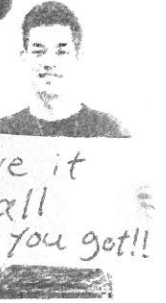 e it
all
you got!!